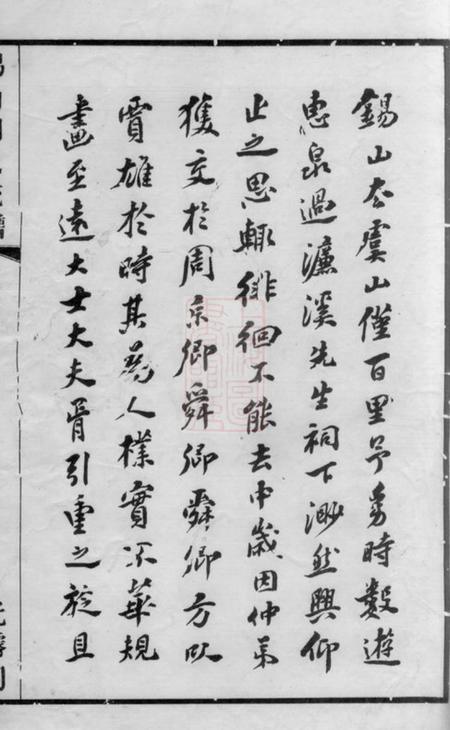 錫山去虞山僅百里予兒時數遊
惠泉過濂溪先生祠下渺然興仰
止之思輒徘徊不能去中歲因仲弟
獲交於周京卿舜卿舜卿方以
賈雄於時其爲人樸實不華規
畫至遠大士大夫胥引重之旋且